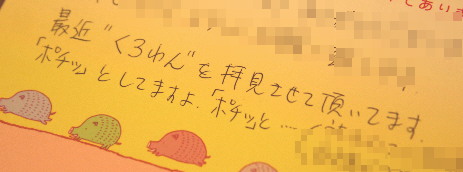 であい
最近"くろわん"を拝見させて頂いてます
「ポチッ」としてますよ.「ポチッと……